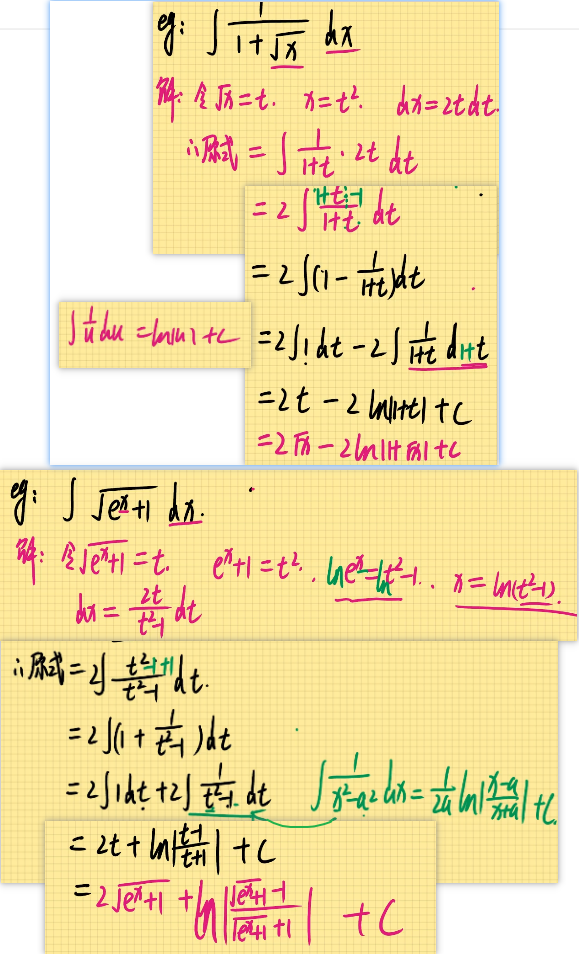 eg: ∫ 1/(1+√x) dx
解: 令√x=t. x=t². dx=2tdt.
∴原式 = ∫ 1/(1+t) · 2t dt
= 2∫ (1+t-1)/(1+t) dt
= 2∫(1 - 1/(1+t))dt
∫ 1/u du = ln|u|+c
= 2∫1dt - 2∫ 1/(1+t) d1+t
= 2t - 2ln|1+t| + C
= 2√x - 2ln|1+√x| + C
eg: ∫ √(eˣ+1) dx.
解: 令√(eˣ+1)=t. eˣ+1=t². lneˣ=lnt²-1. x=ln(t²-1).
dx = 2t/(t²-1) dt
∴原式 = 2∫ (t²-1+1)/(t²-1) dt.
= 2∫(1 + 1/(t²-1))dt
= 2∫1dt + 2∫ 1/(t²-1) dt ∫ 1/(x²-a²) dx = 1/2a ln|(x-a)/(x+a)| + C.
= 2t + ln|(t-1)/(t+1)| + C
= 2√(eˣ+1) + ln|(√(eˣ+1)-1)/(√(eˣ+1)+1)| + C